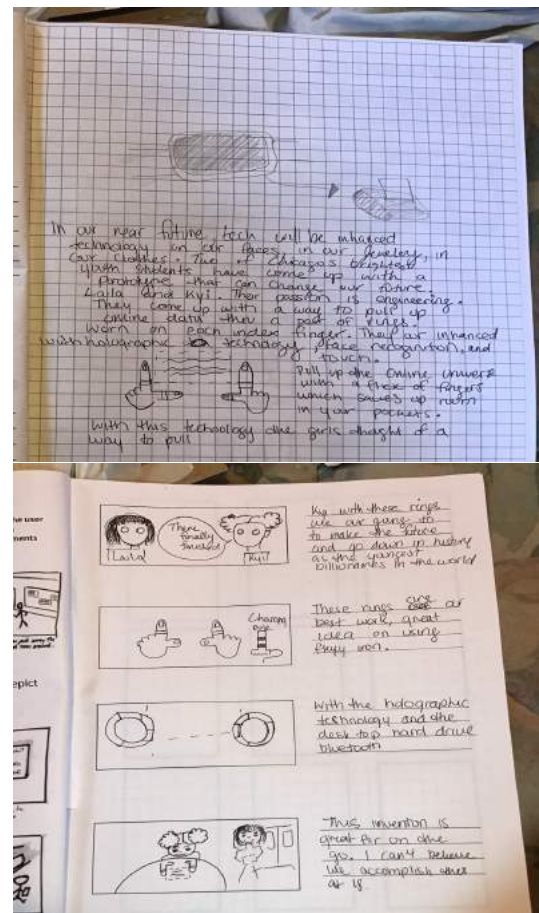 In our near future, tech will be inhanced
technology on our faces in our jewelery, in
our clothes. Two of Chicagos brightest
youth students have come up with a
prototype that can change our future.
Laila and Kyi. Ther passion is engineering.
They come up with a way to pull up
online data thru a pair of rings.
Worn on each index finger. They ar inhanced
with holographic technology, face recognition, and
touch.
Pull up the online univers
with a flick of fingers
which saves up room
in your pockets.
With this technology the girls thought of a
way to pull
he user
ments
epict
There
finally
finished!
Laila
Kyi
Kyi with these rings
we ar going to
to make the future
and go down in history
as the yangest
billionaires in the world
Charging
These rings ar
best work, great
idea on using
iron.
With the holographic
technology and the
desk top hard drive
bluetooth
This invention is
great for on the
go. I can't believe
we accomplish